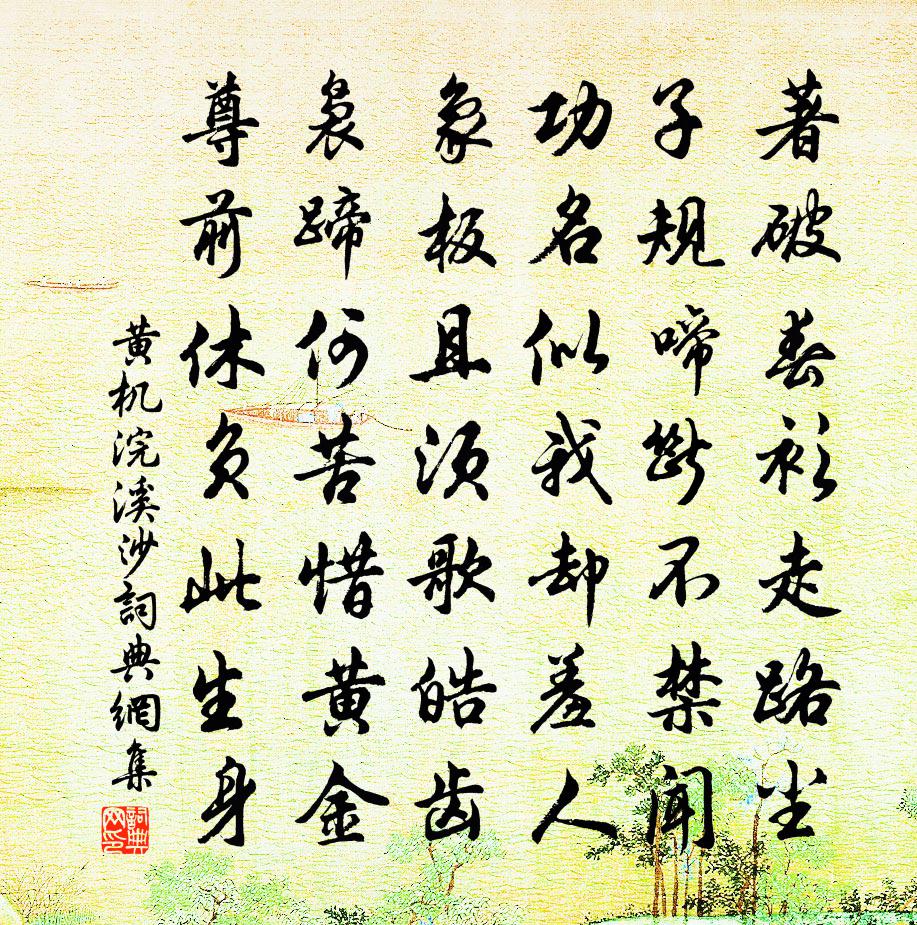 著破春衫走路尘
子規啼断不禁聞
功名似我却羞人
象板且須歌皓齿
裊蹄何苦惜黄金
尊前休負此生身
黄机浣溪沙詞典網集
詞典网印